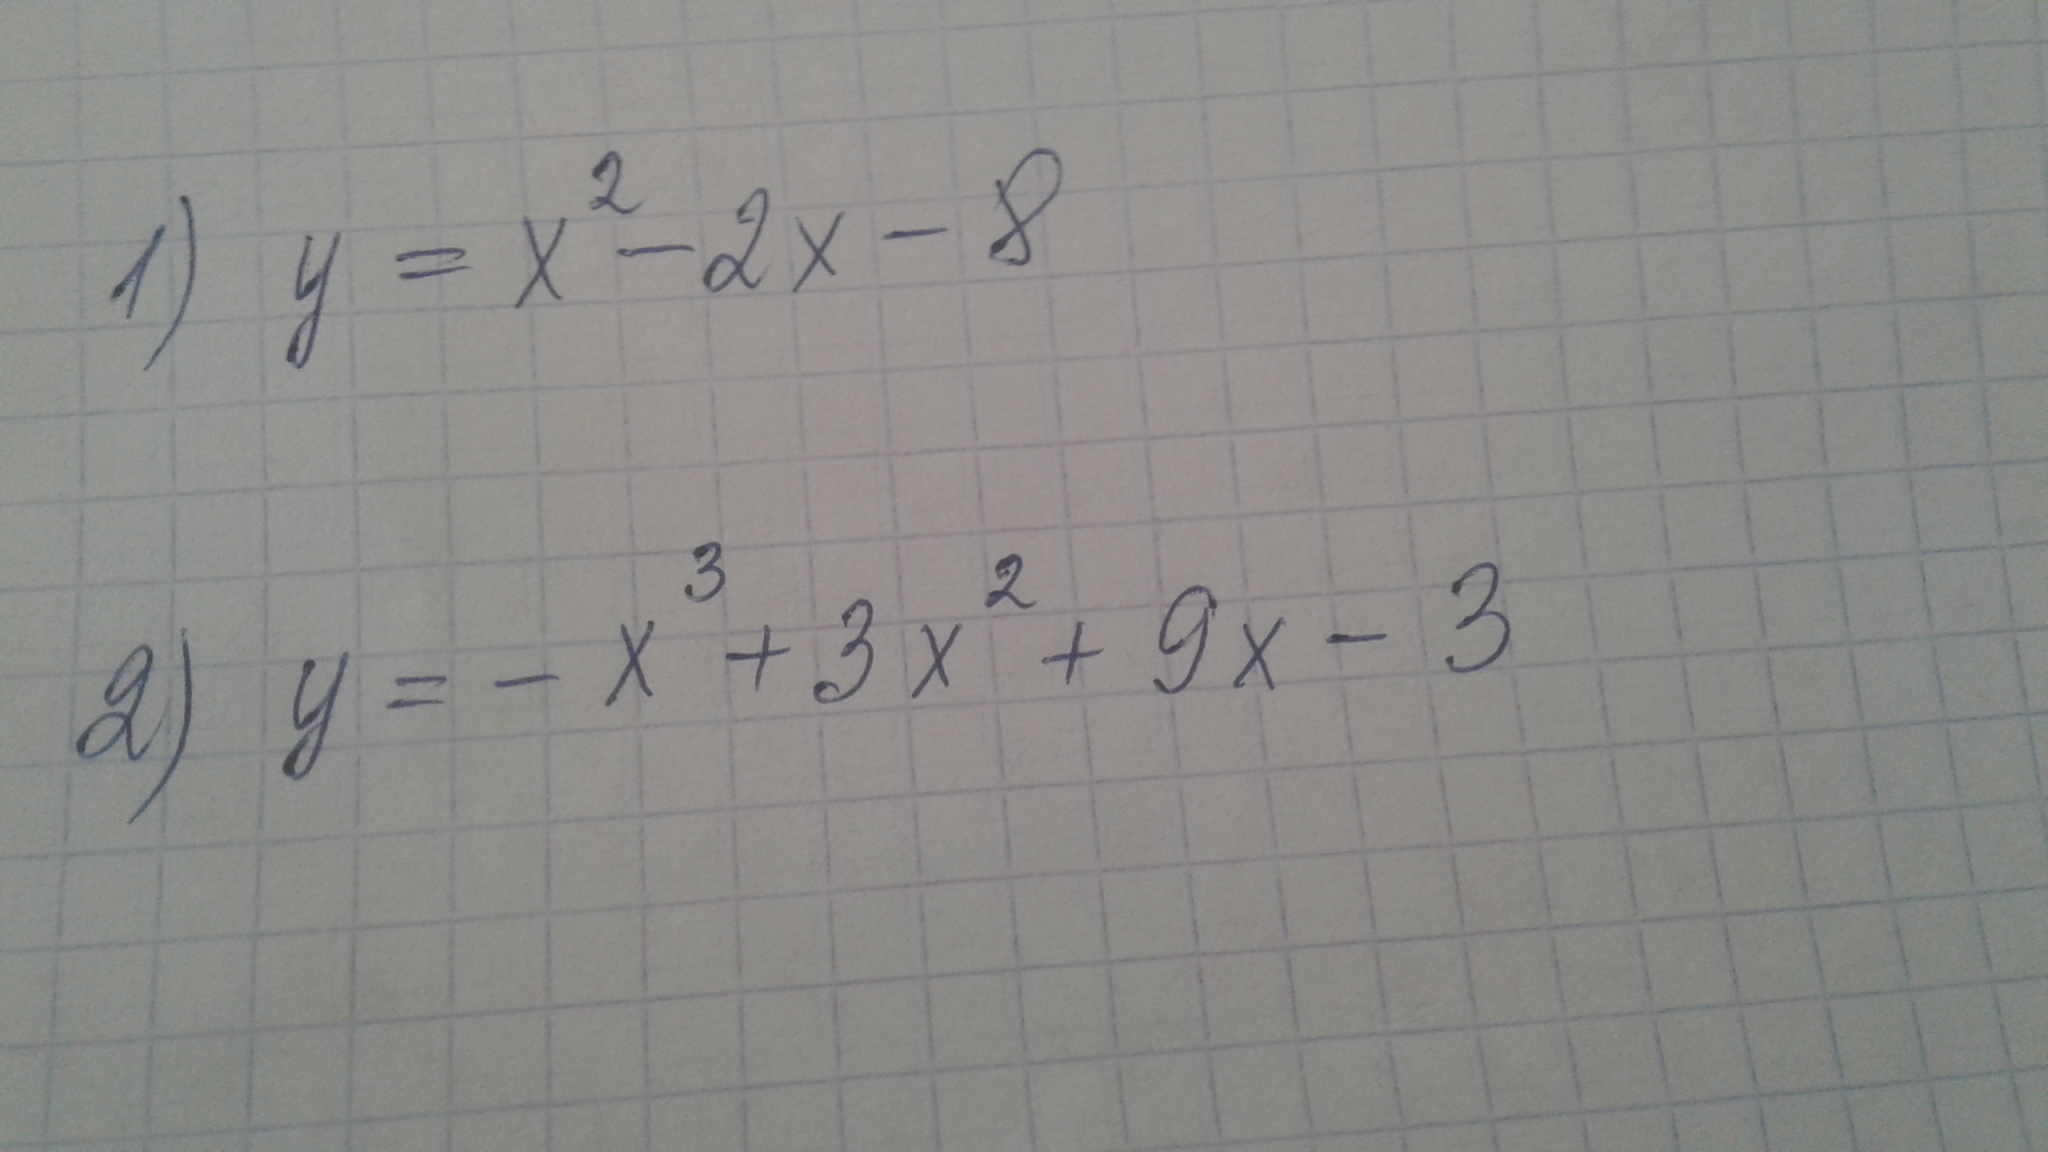 1) y = x² - 2x - 8
2) y = - x³ + 3x² + 9x - 3